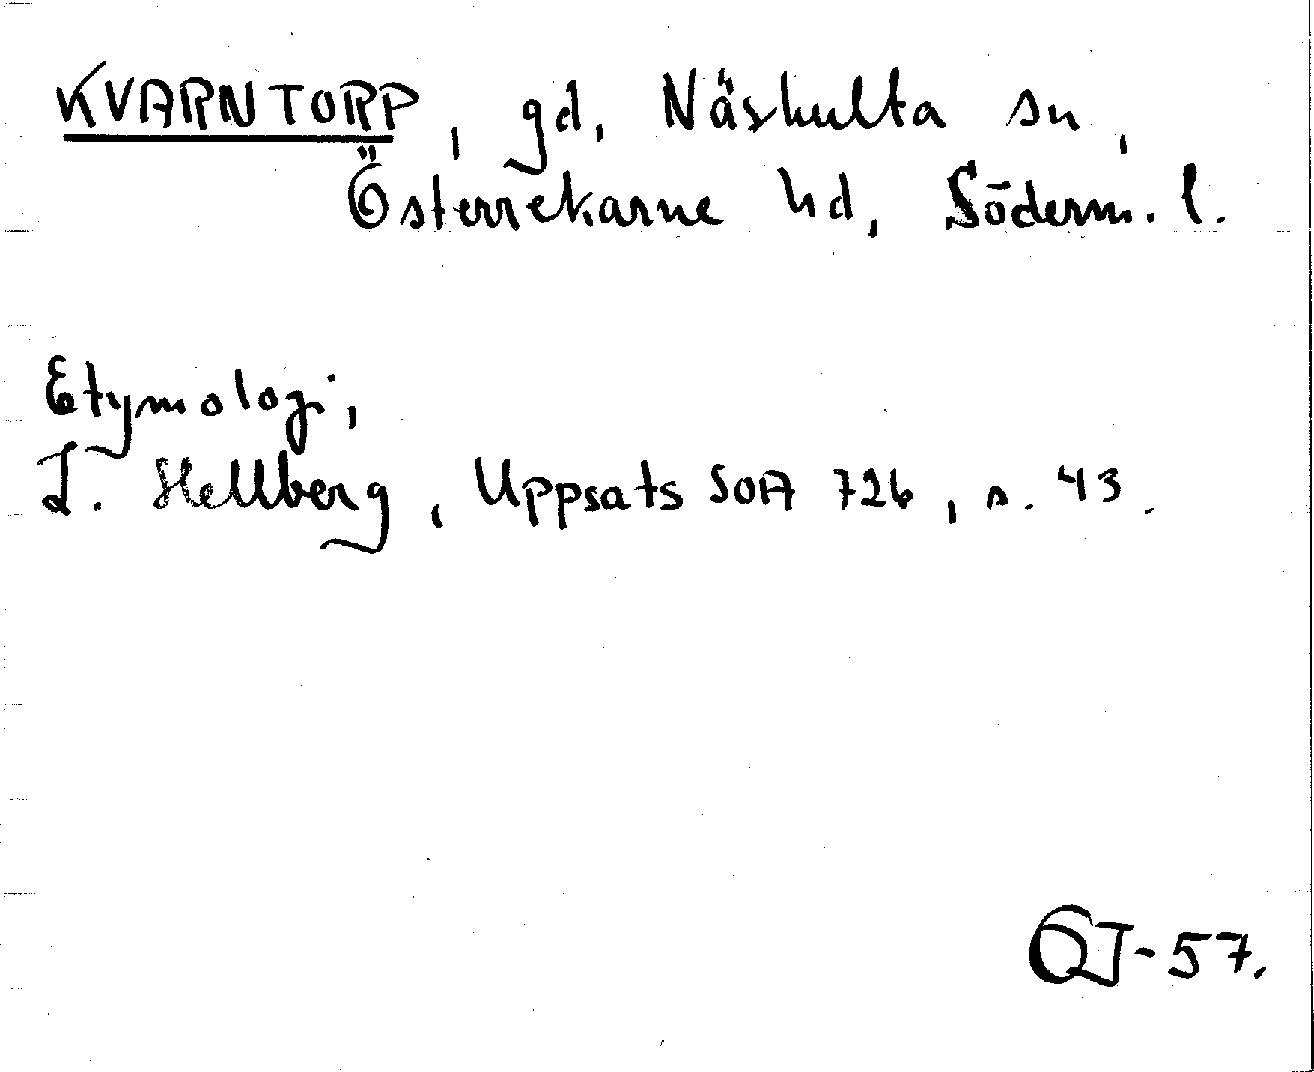 KVARNTORP, gd, Näshulta sn,
Österrekarne hd, Söderm. l.
Etymologi,
L. Hellberg, Uppsats SOA 726, s. 43.
-57.